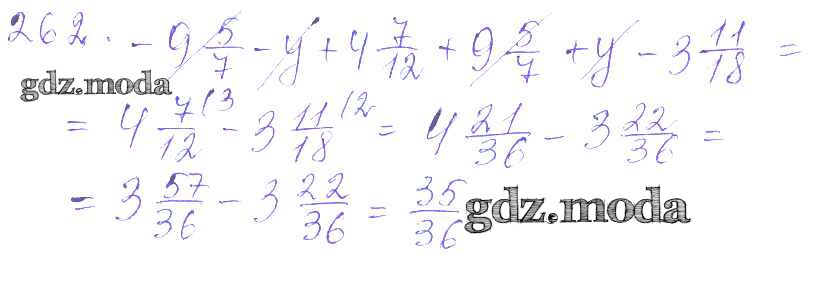 262. - 9 5/7 - y + 4 7/12 + 9 5/7 + y - 3 11/18 =
gdz.moda
= 4 7/12 (3 - 3 11/18 (2 = 4 21/36 - 3 22/36 =
= 3 57/36 - 3 22/36 = 35/36 gdz.moda